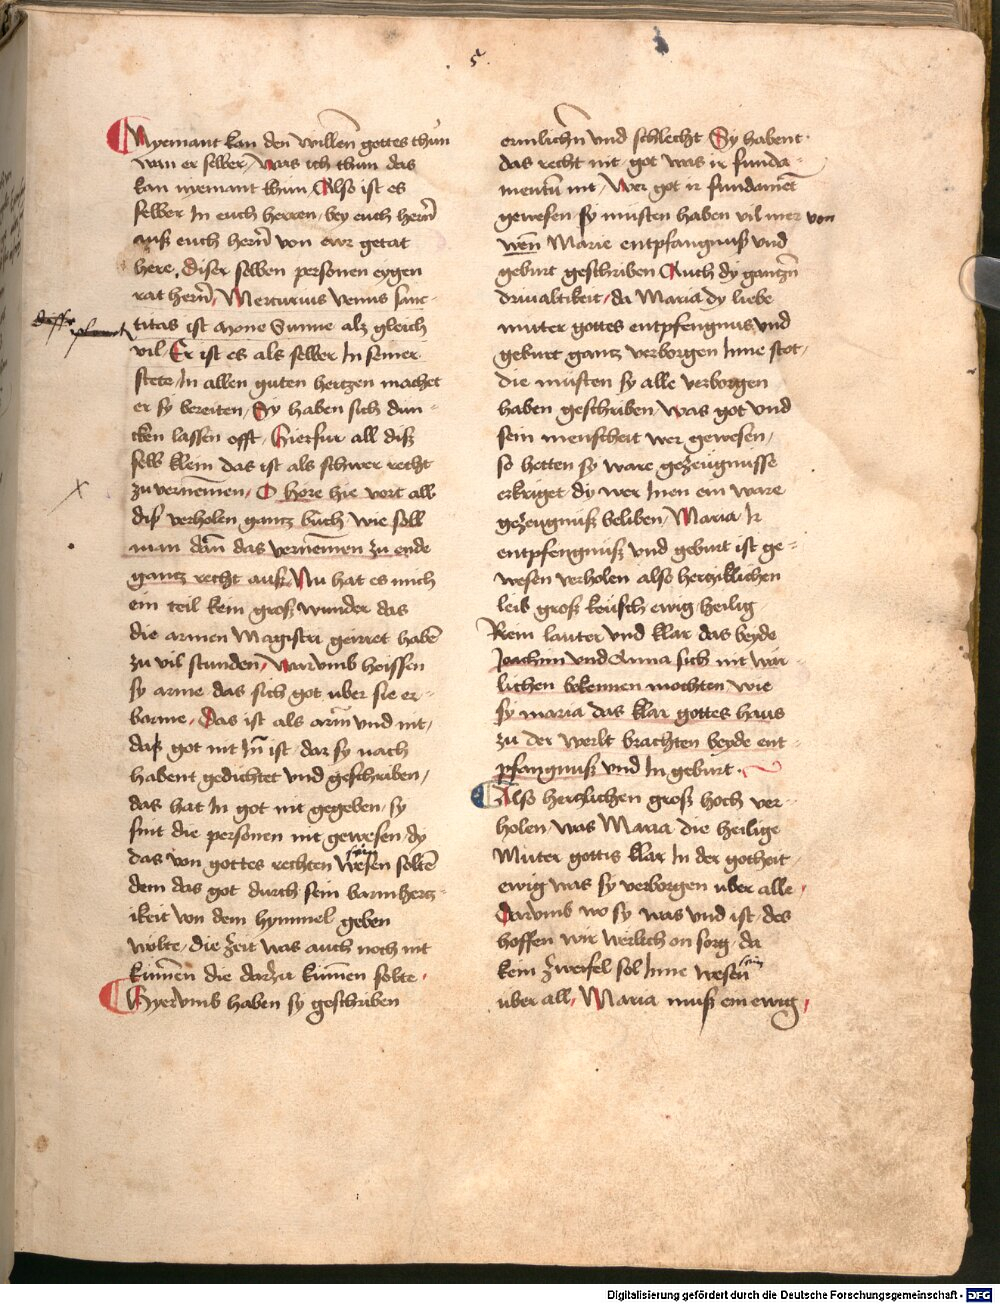 5
Nyemant kan den willen gottes thun
wan er selber, was ich thun das
kan nyemant thun, Also ist es
selber In euch herren, bey euch hern̄
auß euch hern̄ von ewr getat
here, diser selben personen eygen
rat hern̄, Mercurius venus sanc-
titas ist mone Sunne alz gleich
vil, Er ist es als selber In seiner
stete, In allen guten hertzen machet
er sy bereiten, Sy haben sich dun-
cken lassen offt, Hierfur all diß
selb klein das ist als schwer recht
zu vernemen, O hore hie vort all
diß verholen gantz buch wie soll
man dan̄ das vernemen zu ende
gantz recht auß, Nu hat es mich
ein teil kein groß wunder das
die armen Magistri geirret habē
zu vil stunden, warumb heissen
sy arme das sich got uber sie er-
barme, Das ist als arm und nit,
daß got nit In̄ ist, dar sy nach
habent gedichtet und geschriben,
das hat In got nit gegeben, sy
sint die personen nit gewesen, dy
das von gottes rechten wesen soltē
dem das got durch sein barmhertz-
ikeit von dem hymmel geben
wolte, die zeit was auch noch nit
kumen die darzu kumen solte,
Hyerumb haben sy geschriben
ermlichn̄ und schlecht Sy habent
das recht nit, got was ir funda-
mentū nit, Wer got ir fundamēt
gewesen sy musten haben vil mer von
wen̄ Marie entpfangnuß und
geburt geschriben Auch dy gantzn̄
drivaltikeit, da Maria dy liebe
muter gottes entpfengnus und
geburt gantz verborgen Inne stet,
die musten sy alle verborgen
haben geschriben, was got und
sein menscheit wer gewesen,
so hetten sy ware gezeugnusse
erkriget dy wer Inen ein ware
gezeugnuß beliben, Maria Ir
entpfengnuß und geburt ist ge-
wesen verholen also hertziklichen
leib groß keusch ewig heilig
Rein lauter und klar das beyde
Joachim und Anna sich nit war-
lichen bekennen mochten wie
sy maria das klar gottes haus
zu der werlt brachten beyde ent-
pfangnuß und In geburt.
Also hertzlichen groß hoch ver-
holen, was Maria die heilige
Muter gottis klar In der gotheit
ewig was sy verborgen uber alle,
Darumb wo sy was und ist, des
hoffen wir werlich on sorg, da
kein zweifel sol Inne wesen
uber all, Maria muß ein ewig,
Digitalisierung gefördert durch die Deutsche Forschungsgemeinschaft - DFG